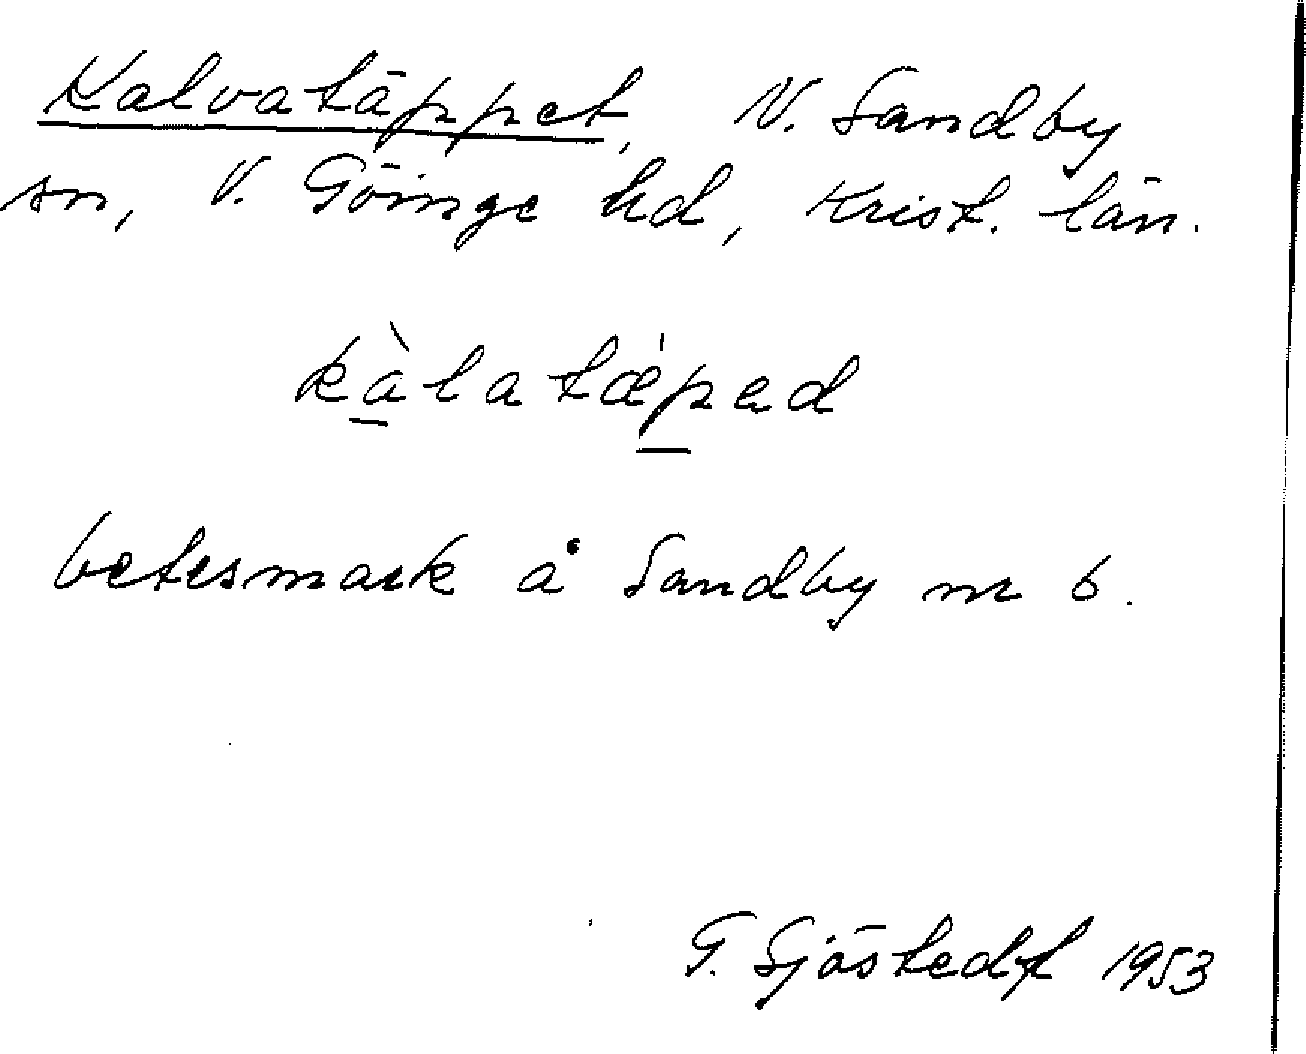 Kalvatäppet, N. Sandby
sn, V. Göinge hd, Krist. län.
kàlatǽpad
betesmark å Sandby nr 6.
G. Sjöstedt 1953